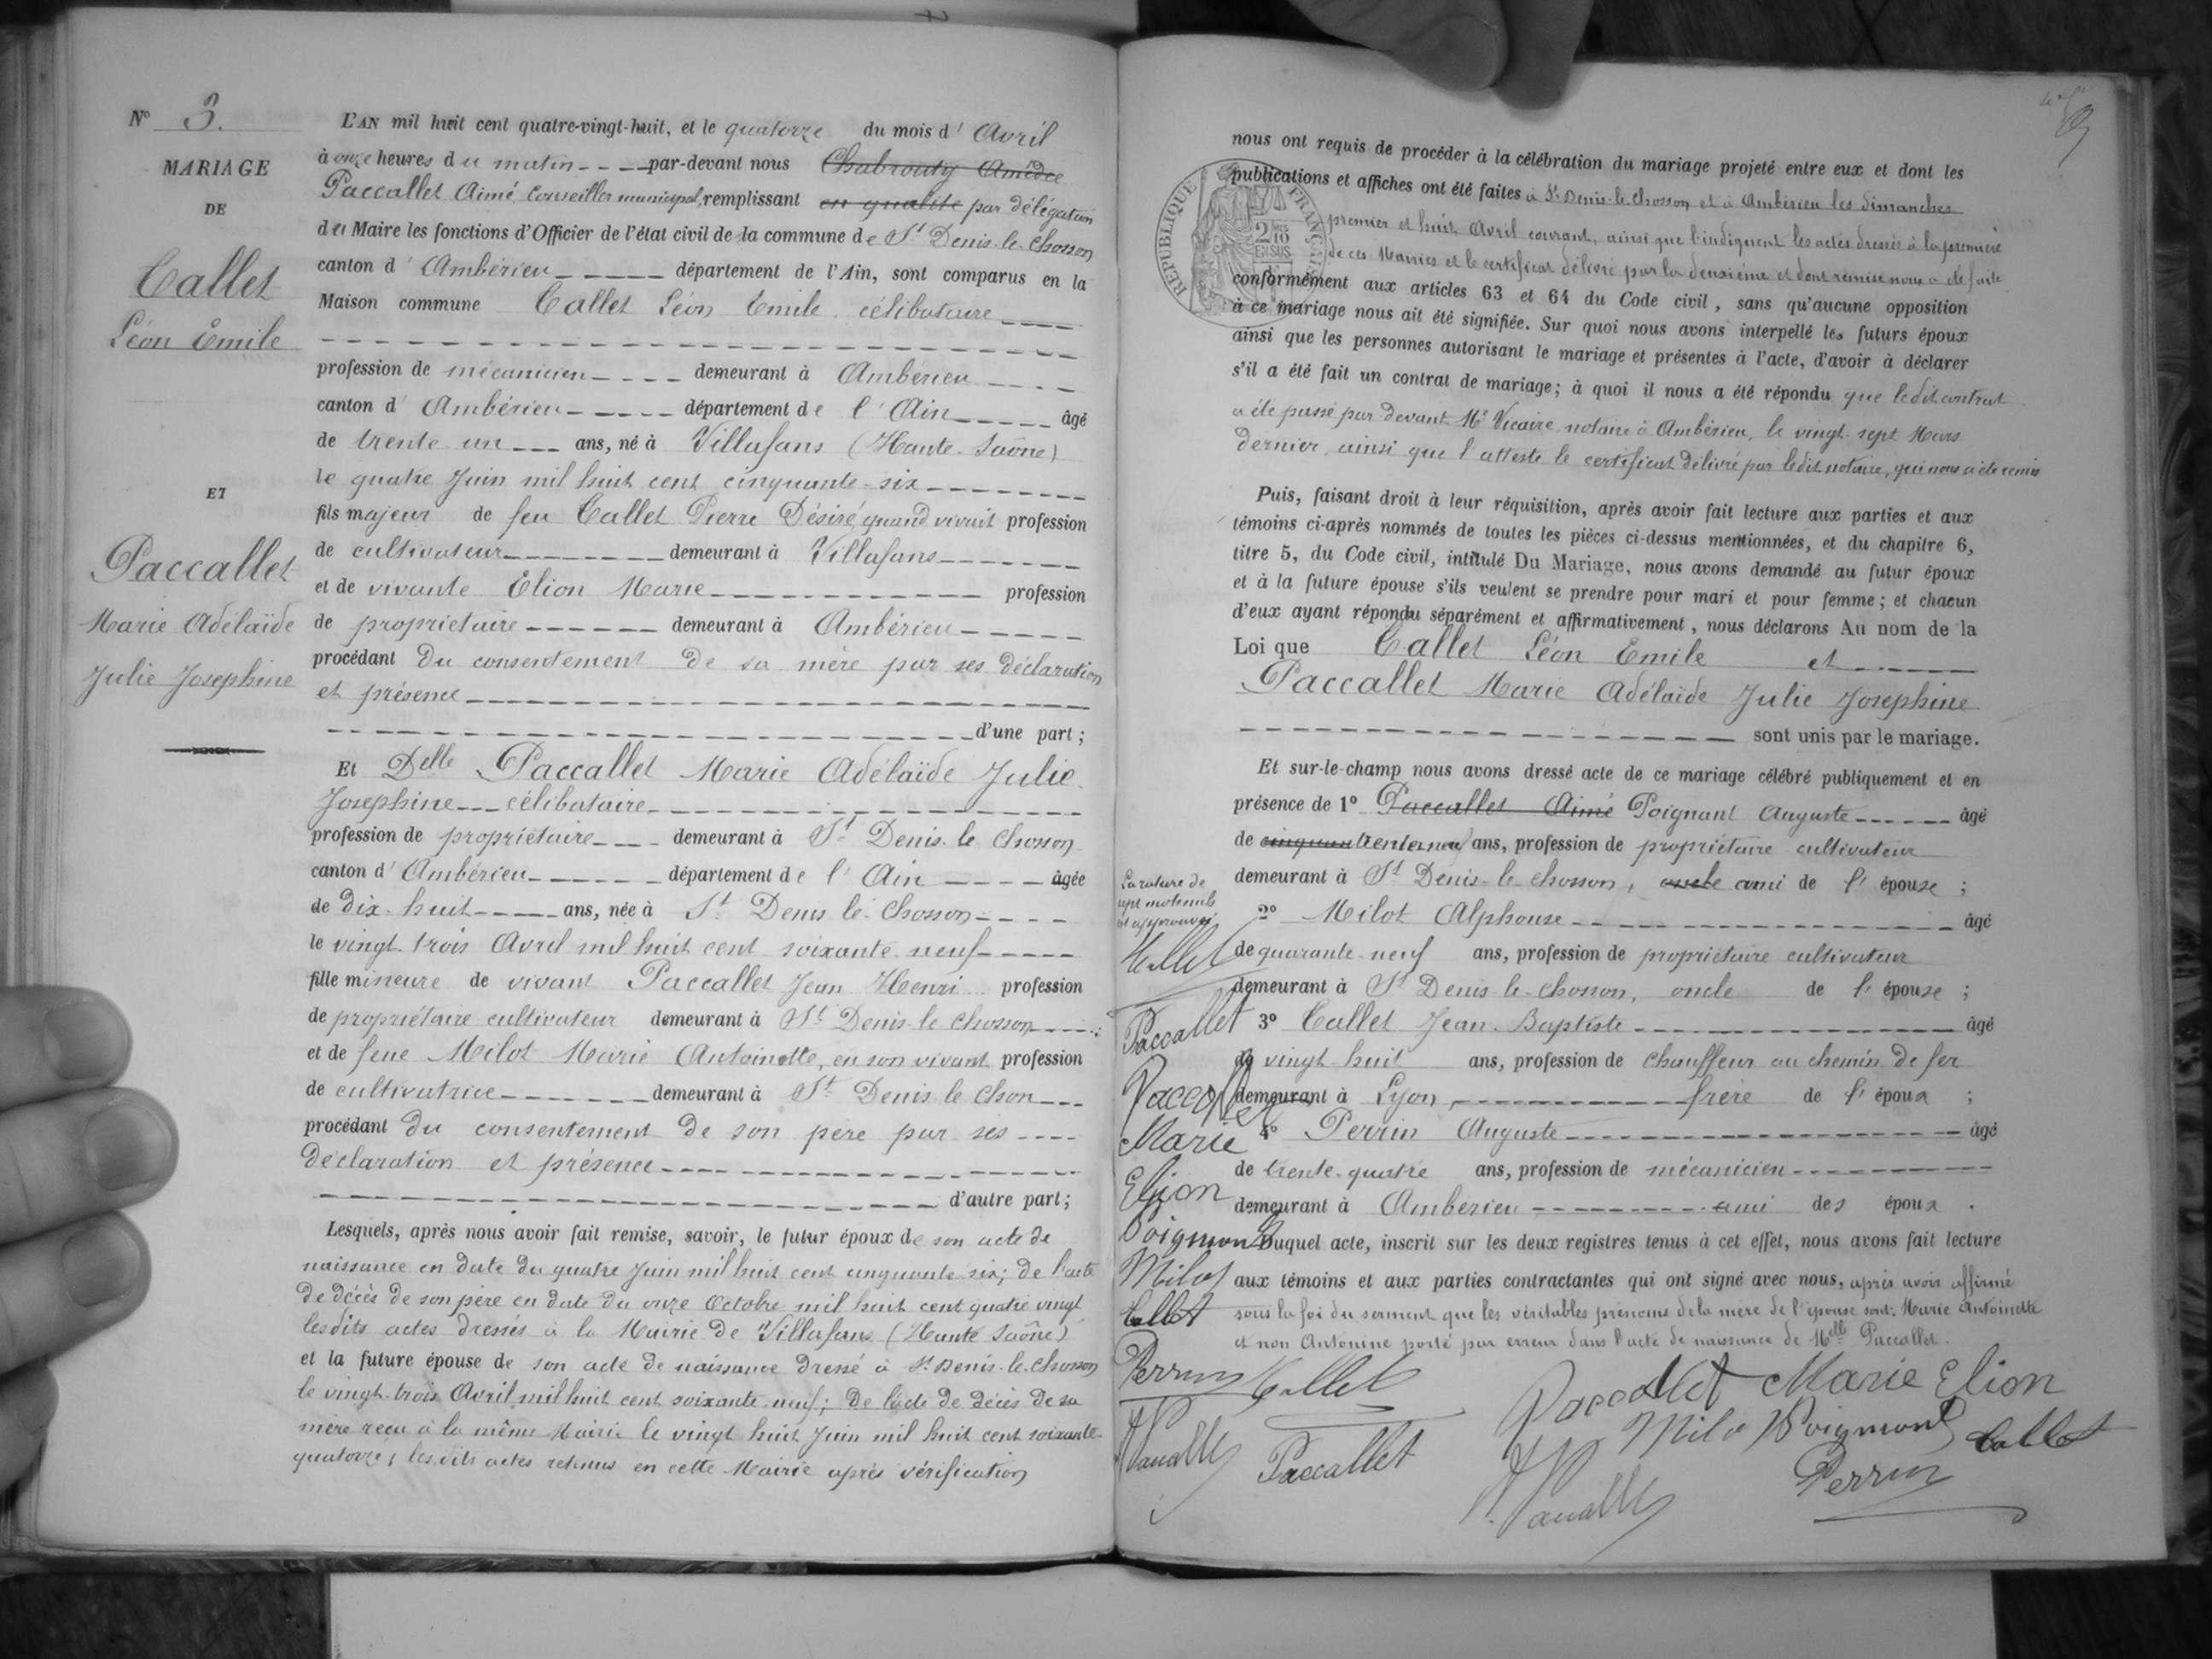 N° 3.
MARIAGE
DE
Callet
Léon Emile
ET
Paccallet
Marie Adélaïde
Julie Josephine
L'AN mil huit cent quatre-vingt-huit, et le quatorze du mois d' Avril
à onze heures du matin par-devant nous Chabrouty Amédée
Paccallet Aimé, Conseiller municipal, remplissant en qualité par délégation
du Maire les fonctions d'Officier de l'état civil de la commune de St Denis-le-Chosson
canton d' Ambérieu département de l'Ain, sont comparus en la
Maison commune Callet Léon Emile célibataire
profession de mécanicien demeurant à Ambérieu
canton d' Ambérieu département de l'Ain âgé
de trente un ans, né à Villafans (Haute-Saône)
le quatre Juin mil huit cent cinquante-six
fils majeur de feu Callet Pierre Désiré, quand vivait profession
de cultivateur demeurant à Villafans
et de vivante Elion Marie profession
de propriétaire demeurant à Ambérieu
procédant du consentement de sa mère par ses déclaration
et présence
d'une part ;
Et Delle Paccallet Marie Adélaïde Julie
Josephine célibataire
profession de propriétaire demeurant à St Denis-le-Chosson
canton d' Ambérieu département de l'Ain âgée
de dix-huit ans, née à St Denis-le-Chosson
le vingt-trois Avril mil huit cent soixante neuf
fille mineure de vivant Paccallet Jean Henri profession
de propriétaire cultivateur demeurant à St Denis-le-Chosson
et de feue Milot Marie Antoinette, en son vivant profession
de cultivatrice demeurant à St Denis-le-Chon
procédant du consentement de son père par ses
déclaration et présence
d'autre part ;
Lesquels, après nous avoir fait remise, savoir, le futur époux de son acte de
naissance en date du quatre Juin mil huit cent cinquante-six; de l'acte
de décès de son père en date du onze Octobre mil huit cent quatre vingt
lesdits actes dressés à la Mairie de Villafans (Haute Saône)
et la future épouse de son acte de naissance dressé à St Denis-le-Chosson
le vingt-trois Avril mil huit cent soixante neuf; de l'acte de décès de sa
mère reçu à la même Mairie le vingt huit Juin mil huit cent soixante-
quatorze, lesdits actes retenus en cette Mairie après vérification
nous ont requis de procéder à la célébration du mariage projeté entre eux et dont les
publications et affiches ont été faites à St Denis-le-Chosson et à Ambérieu les dimanches
premier et huit Avril courant, ainsi que l'indiquent les actes dressés à la première
de ces Mairies et le certificat délivré par la deuxième et dont remise nous a été faite
RÉPUBLIQUE FRANÇAISE
2/10 EN SUS
conformément aux articles 63 et 64 du Code civil, sans qu'aucune opposition
à ce mariage nous ait été signifiée. Sur quoi nous avons interpellé les futurs époux
ainsi que les personnes autorisant le mariage et présentes à l'acte, d'avoir à déclarer
s'il a été fait un contrat de mariage; à quoi il nous a été répondu que ledit contrat
a été passé par devant Me Vicaire notaire à Ambérieu, le vingt-sept Mars
dernier, ainsi que l'atteste le certificat délivré par ledit notaire, qui nous a été remis
Puis, faisant droit à leur réquisition, après avoir fait lecture aux parties et aux
témoins ci-après nommés de toutes les pièces ci-dessus mentionnées, et du chapitre 6,
titre 5, du Code civil, intitulé Du Mariage, nous avons demandé au futur époux
et à la future épouse s'ils veulent se prendre pour mari et pour femme; et chacun
d'eux ayant répondu séparément et affirmativement, nous déclarons Au nom de la
Loi que Callet Léon Emile et
Paccallet Marie Adélaïde Julie Josephine
sont unis par le mariage.
Et sur-le-champ nous avons dressé acte de ce mariage célébré publiquement et en
présence de 1° Paccallet Aimé Poignant Auguste âgé
de cinquan trente neuf ans, profession de propriétaire cultivateur
demeurant à St Denis-le-Chosson, oncle ami de l'épouse ;
2° Milot Alphonse âgé
de quarante-neuf ans, profession de propriétaire cultivateur
demeurant à St Denis-le-Chosson, oncle de l'épouse ;
3° Callet Jean-Baptiste âgé
de vingt-huit ans, profession de chauffeur au chemin de fer
demeurant à Lyon, frère de l'époux ;
4° Perrin Auguste âgé
de trente-quatre ans, profession de mécanicien
demeurant à Ambérieu ami des époux .
Duquel acte, inscrit sur les deux registres tenus à cet effet, nous avons fait lecture
aux témoins et aux parties contractantes qui ont signé avec nous, après avoir affirmé
sous la foi du serment que les véritables prénoms de la mère de l'épouse sont: Marie Antoinette
et non Antonine porté par erreur dans l'acte de naissance de Melle Paccallet.
La rature de
sept mots nuls
est approuvée
Callet
Paccallet
Paccallet
Marie
Elion
Poignant
Milot
Callet
Perrin
Callet
Paccallet
Paccallet Marie Elion
Milot Poignant Callet
Perrin